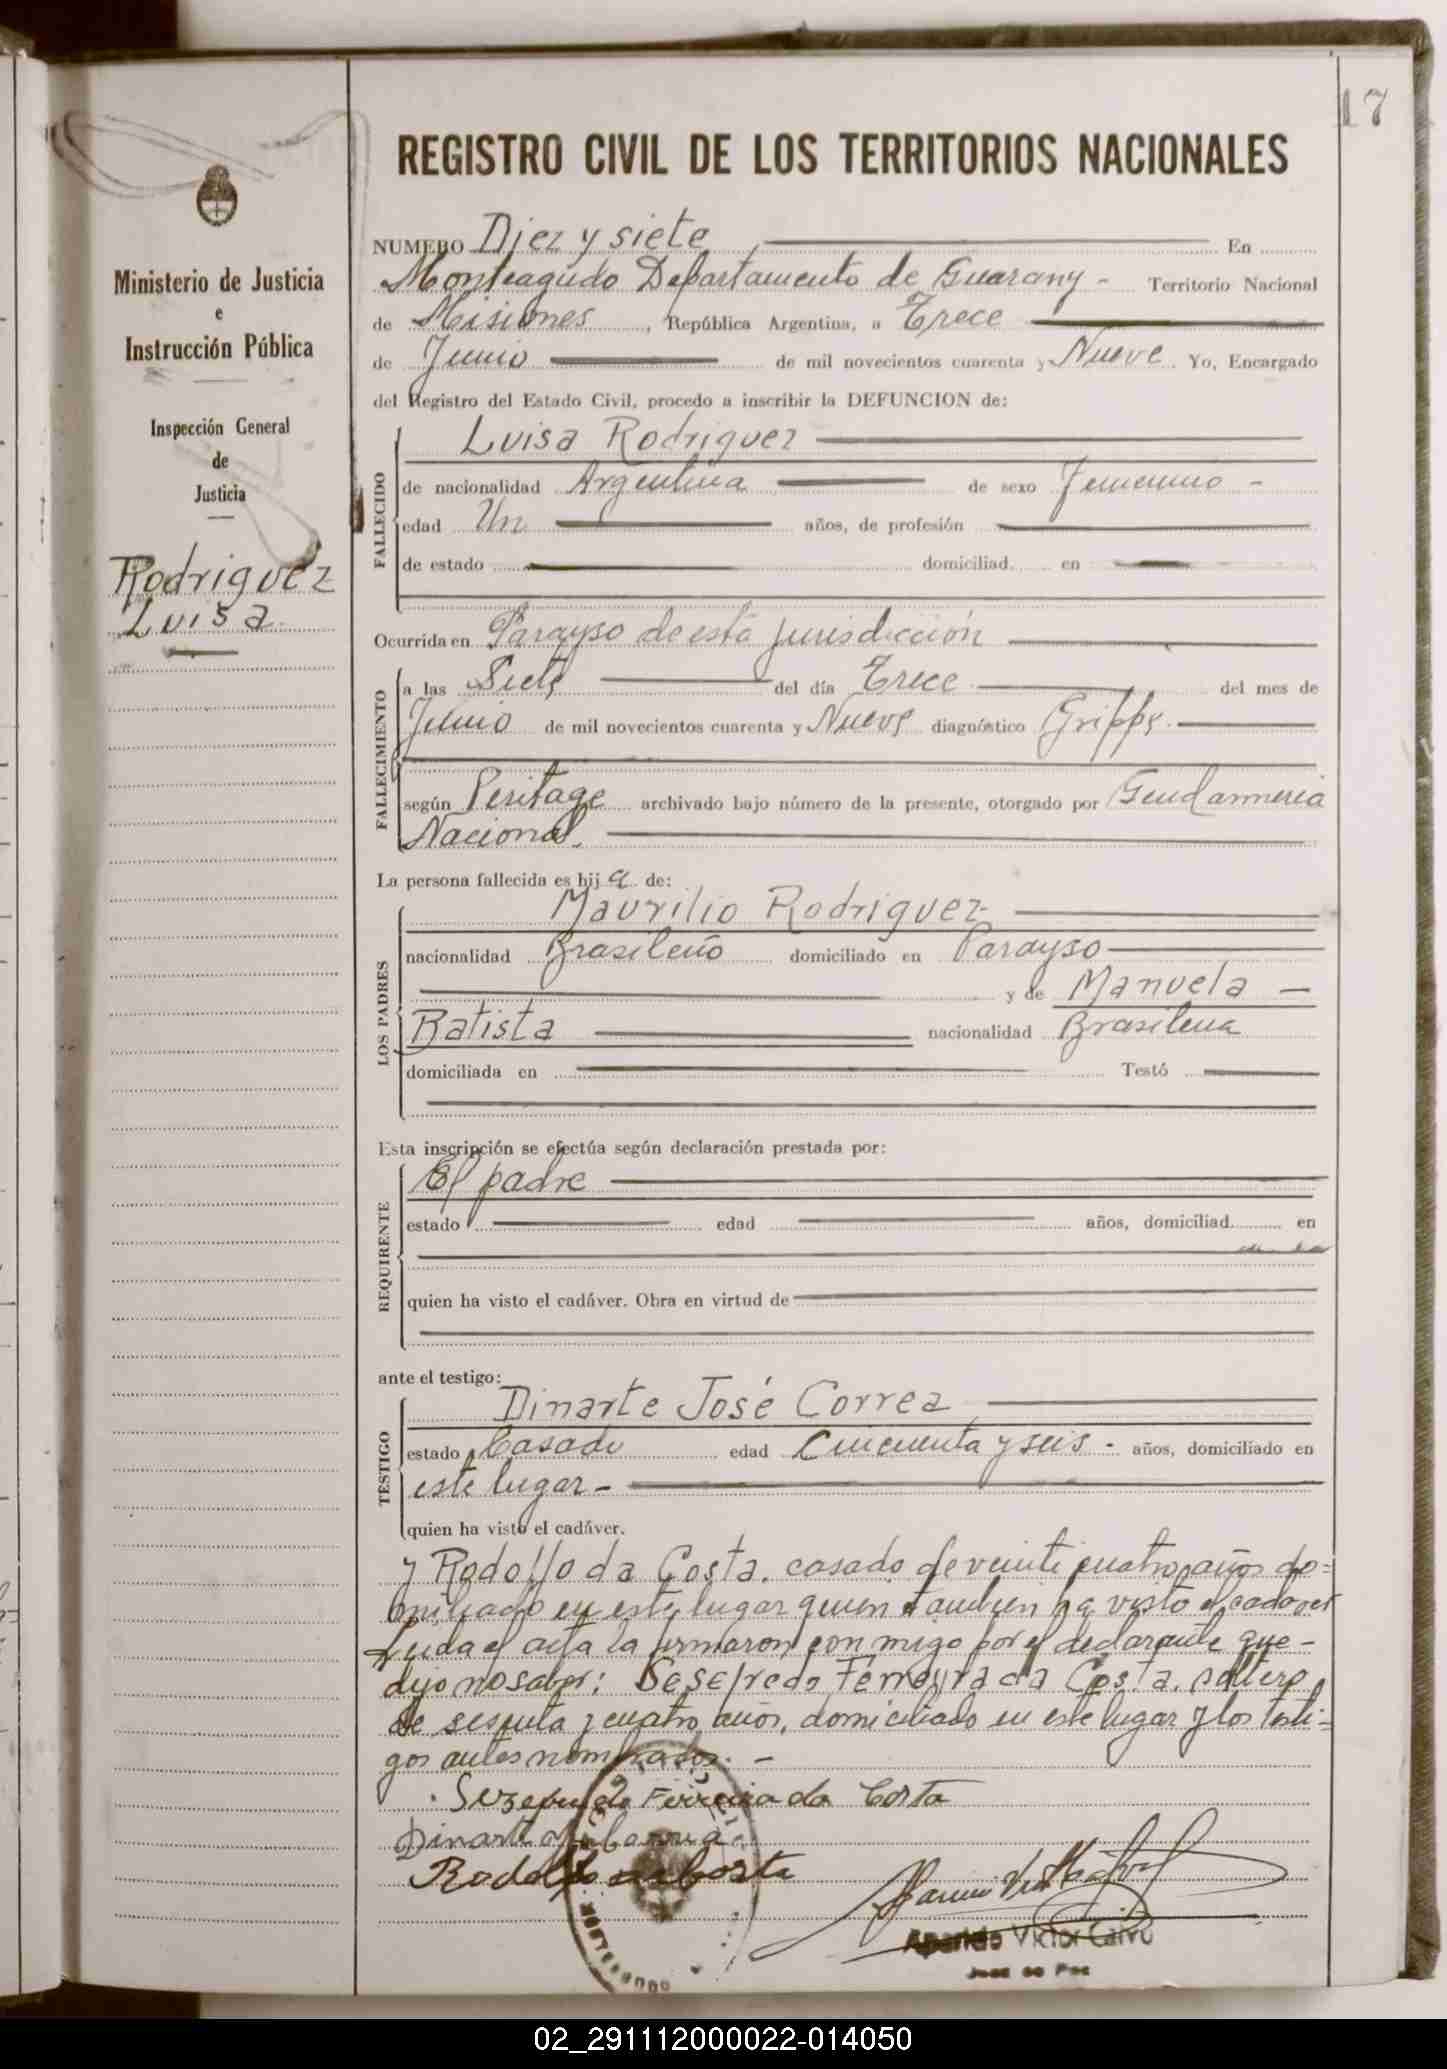 17
REGISTRO CIVIL DE LOS TERRITORIOS NACIONALES
Ministerio de Justicia
e
Instrucción Pública
Inspección General
de
Justicia
Rodriguez
Luisa
NUMERO Diez y siete En
Monteagudo Departamento de Guarany - Territorio Nacional
de Misiones, República Argentina, a Trece
de Junio de mil novecientos cuarenta y Nueve. Yo, Encargado
del Registro del Estado Civil, procedo a inscribir la DEFUNCION de:
FALLECIDO
Luisa Rodriguez
de nacionalidad Argentina de sexo Femenino -
edad Un años, de profesión
de estado domiciliad en
Ocurrida en Parayso de esta jurisdicción
FALLECIMIENTO
a las Siete del día Trece del mes de
Junio de mil novecientos cuarenta y Nueve diagnóstico Grippe.
según Peritage archivado bajo número de la presente, otorgado por Gendarmeria
Nacional.
La persona fallecida es hija de:
LOS PADRES
Maurilio Rodriguez
nacionalidad Brasileño domiciliado en Parayso
y de Manuela -
Batista nacionalidad Brasilena
domiciliada en Testó
Esta inscripción se efectúa según declaración prestada por:
REQUIRENTE
El padre
estado edad años, domiciliad en
quien ha visto el cadáver. Obra en virtud de
ante el testigo:
TESTIGO
Dinarte José Correa
estado Casado edad Cincuenta y seis - años, domiciliado en
este lugar -
quien ha visto el cadáver.
y Rodolfo da Costa, casado de veinte cuatro años do=
miciliado en este lugar quien tambien ha visto el cadaver
Leida el acta la firmaron conmigo por el declarante que-
dijo no saber: Sesefredo Ferreyra da Costa, soltero,
de sesenta y cuatro años, domiciliado en este lugar y los testi=
gos antes nombrados. -
Ferreira da Costa
Dinarte
Rodolfo da Costa
Aparicio Victor Calvo
Juez de Paz
02_291112000022-014050